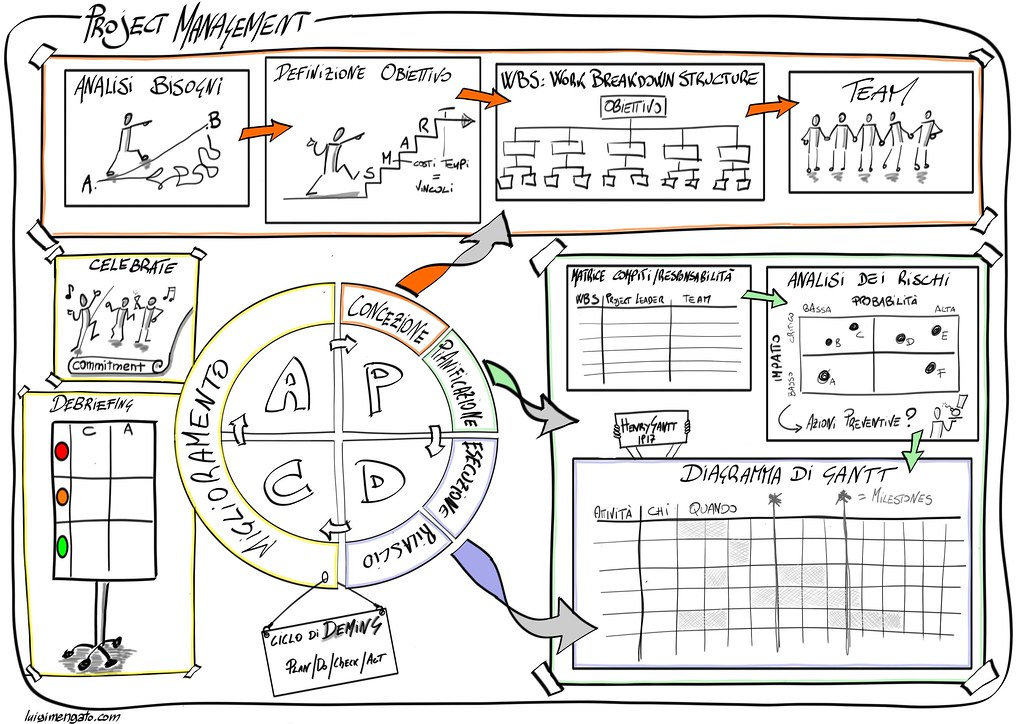 PROJECT MANAGEMENT
ANALISI BISOGNI
A.
B
DEFINIZIONE OBIETTIVO
S
M
A
R
T
COSTI TEMPI
=
VINCOLI
WBS: WORK BREAKDOWN STRUCTURE
OBIETTIVO
TEAM
CELEBRATE
commitment
DEBRIEFING
C A
CONCEZIONE
PIANIFICAZIONE
ESECUZIONE
RILASCIO
MIGLIORAMENTO
A P
C D
CICLO DI DEMING
PLAN/DO/CHECK/ACT
MATRICE COMPITI/RESPONSABILITÀ
WBS PROJECT LEADER TEAM
ANALISI DEI RISCHI
PROBABILITÀ
BASSA ALTA
IMPATTO
CRITICO
BASSO
B C D E
A F
AZIONI PREVENTIVE?
HENRY GANTT
1917
DIAGRAMMA DI GANTT
= MILESTONES
ATIVITÀ CHI QUANDO
luigimengato.com